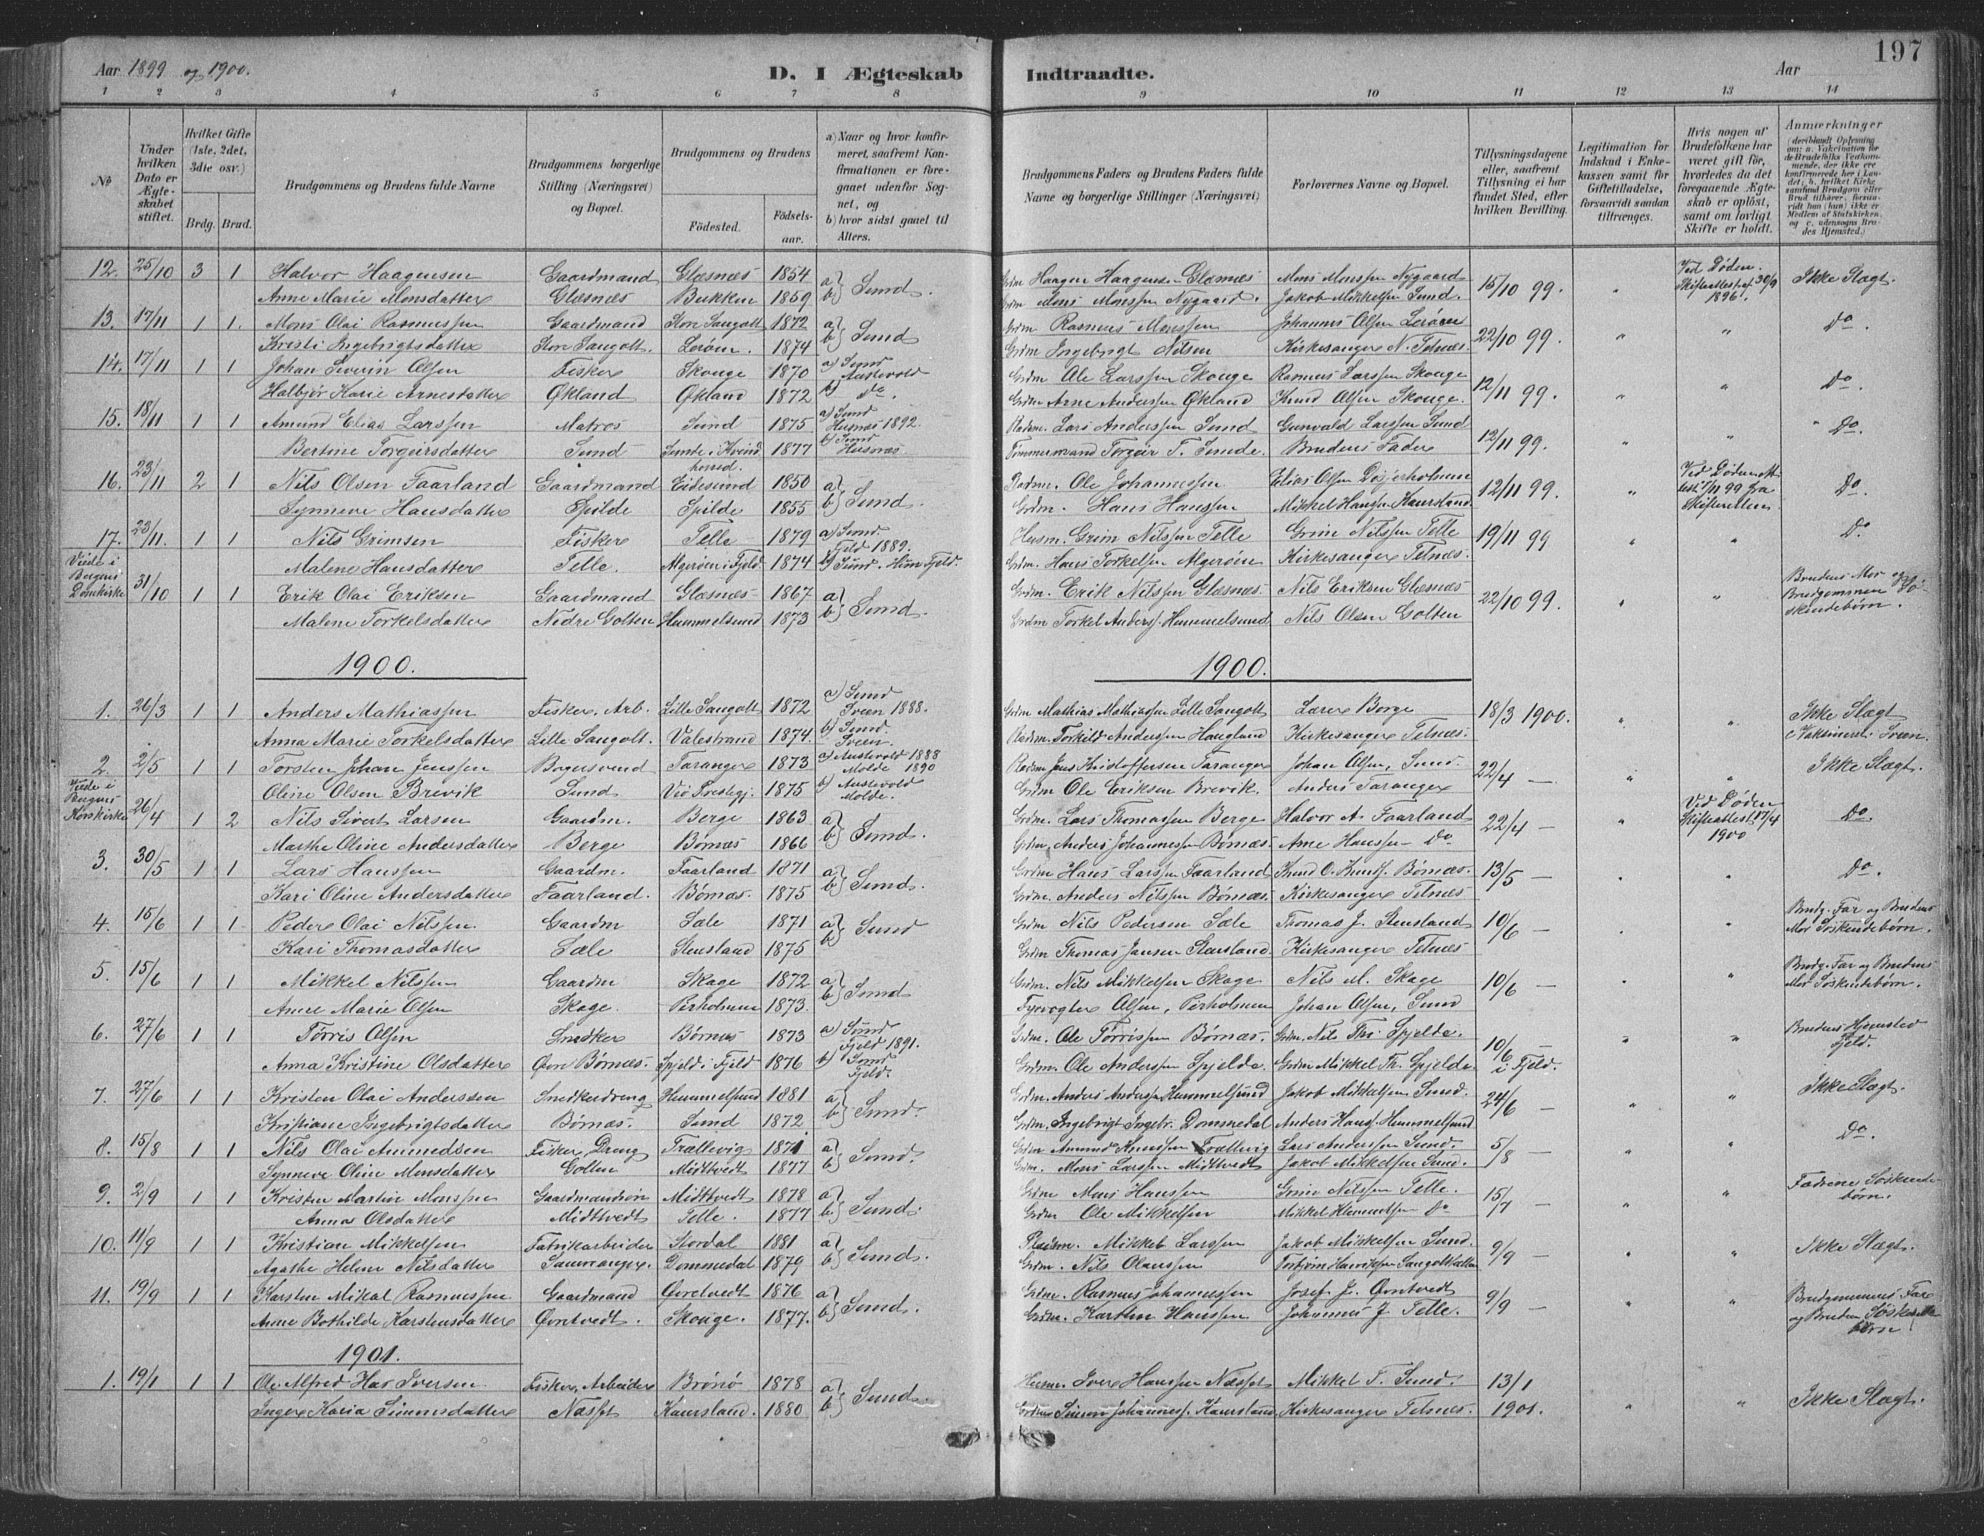 Aar 1899 og 1900.
D. I Ægteskab Indtraadte.
Aar
197
1 2 3 4 5 6 7 8 9 10 11 12 13 14
No
Under hvilken Dato er Ægteskabet stiftet.
Hvilket Gifte (1ste, 2det, 3die osv.)
Brdg. Brud.
Brudgommens og Brudens fulde Navne
Brudgommens borgerlige Stilling (Næringsvei) og Bopæl.
Brudgommens og Brudens
Fødested. Fødselsaar.
a) Naar og hvor konfirmeret, saafremt Konfirmationen er foregaaet udenfor Sognet, og
b) hvor sidst gaaet til Alters.
Brudgommens Faders og Brudens Faders fulde Navne og borgerlige Stillinger (Næringsvei)
Forlovernes Navne og Bopæl.
Tillysningsdagene eller, saafremt Tillysning ei har fundet Sted, efter hvilken Bevilling.
Legitimation for Indskud i Enkekassen samt for Giftetilladelse, forsaavidt saadan tiltrænges.
Hvis nogen af Brudefolkene har været gift før, hvorledes da det foregaaende Ægteskab er opløst, samt om lovligt Skifte er holdt.
Anmærkninger
12. 25/10 3 1 Halvor Haagensen Gaardmand Glæsnæs 1854 a) Haagen Haagens. Glæsnæs Mons Monssen Nygaard 15/10 99. " Ved Døden. Skifteattest af 30/9 1896. Ikke Slægt.
Anne Marie Monsdatter Glæsnæs Bukken 1859 b) Sund. Grdm Mons Monssen Nygaard. Jakob Mikkelsen Sund.
13. 17/11 1 1. Mons Olai Rasmussen Gaardmand Store Sangolt 1872 a) Grdm Rasmus Monssen Johannes Olsen Lerøen 22/10 99. " " Do.
Kristi Ingebrigtsdatter Store Sangolt. Lerøen. 1874 b) Sund Grdm Ingebrigt Nilsen Kirkesanger N. Telnæs.
14. 17/11 1 1 Johan Severin Olsen Fisker Skouge 1870 a) Sund Austevold Grdm Ole Larssen Skouge Rasmus Larssen Skouge 12/11 99. " Do.
Halbjør Karie Arnesdatter Økland Økland 1872 b) do. Grdm Arne Anderssen Økland Knud Olsen Skouge.
15. 18/11 1 1 Amund Elias Larssen Matros Sund 1875 a) Sund Husnæs 1892. Pladsm. Lars Anderssen Sund Gunvald Larssen Sund 12/11 99. " " " Do.
Bertine Torgeirsdatter Sund Sunde i Kvindherred. 1877 b) Sund Husnæs Tømmermand Torgeir T. Sunde. Brudens Fader
16. 23/11 2 1 Nils Olsen Faarland Gaardmand Eidesund 1850 a) Pladsm. Ole Johannessen Elias Olsen 12/11 99. " Ved Døden 1/11 99 fra Skifteretten Do.
Synneve Hansdatter Spilde Spilde 1855 b) Sund. Grdm. Hans Hanssen Mikkel Hansen Haarsland.
17. 23/11. 1 1 Nils Grimsen Fisker Telle 1879 a) Sund Fjeld 1889. Husm. Grim Nilssen Telle Grim Nilssen Telle 19/11 99 " " Do
Malene Hansdatter Telle. Algerøen i Fjeld 1874 b) Sund. Hun Fjeld. Grdm. Hans Torkelsen Algerøen Kirkesanger Telnæs.
Viede i Bergens Domkirke 31/10 1 1 Erik Olai Eriksen Gaardmand Glæsnæs 1867 a) Grdm. Erik Nilssen Glæsnæs. Nils Eriksen Glæsnæs. 22/10 99. " " Brudens Mor og Brudgommen Søskendebørn.
Malene Torkelsdatter Nedre Golten Hummelsund 1873 b) Sund. Grdm Torkel Anderss. Hummelsund Nils Olsen Golten
1900. 1900.
1. 26/3 1 1 Anders Mathiassen Fisker, Arb. Lille Sangolt 1872 a) Sund Sveen 1888. Grdm Mathias Mathiassen Lille Sangolt Lærer Berge 18/3 1900. " " Ikke Slægt
Anna Marie Torkelsdatter Lille Sangolt. Valestrand 1874 b) Sund. Sveen. Pladsm. Torkild Anderssen Haugland Kirkesanger Telnæs. Vaksineret i Sveen.
2. 2/5 1 1 Torsten Johan Jenssen Bagersvend Taranger 1873 a) Austevold 1888 Molde 1890 Pladsm Jens Kristoffersen Taranger Johan Olsen, Sund. 22/4 — " " Ikke Slægt.
Oline Olsen Brevik Sund Vio Prestegj. 1875 b) Austevold Molde. Grdm Ole Eriksen Brevik. Anders Taranger
Viede i Bergens Korskirke 26/4 1 2 Nils Sivert Larsen Gaardm. Berge 1863 a) Grdm. Lars Thomassen Berge Halvor A. Faarland 22/4 — " Ved Døden Skifteattest 17/4 1900 Do.
Marthe Oline Andersdatter Berge Børnæs 1866 b) Sund. Grdm. Anders Johannessen Børnæs. Arne Hanssen — Do
3. 30/5 1 1 Lars Hanssen Gaardm. Faarland 1871 a) Grdm Hans Larssen Faarland Knud O. Knuds. Børnæs. 13/5 — " " Do.
Kari Oline Andersdatter Faarland. Børnæs. 1875 b) Sund. Grdm. Anders Nilssen Børnæs. Kirkesanger Telnæs
4. 15/6 1 1 Peder Olai Nilssen Gaardm Sæle 1871 a) Grdm Nils Pedersen Sæle Thomas J. Stensland 10/6 — " " Brudg. Far og Brudens Mor Søskendebørn.
Kari Thomasdatter Sæle. Stensland 1875 b) Sund Grdm Thomas Jansen Stensland. Kirkesanger Telnæs
5. 15/6 1 1 Mikkel Nilssen Gaardm Skage 1872 a) Grdm. Nils Mikkelsen Skage Nils M. Skage 10/6 — " " Brudg. Far og Brudens Mor Søskendebørn.
Anne Marie Olsen Skage. Perholmene 1873. b) Sund Fyrvogter Olsen, Perholmen Johan Olsen, Sund
6. 27/6 1 1 Torris Olsen Snedker Børnæs 1873 a) Sund Fjeld 1891. Grdm. Ole Torrissen Børnæs. Grdm. Nils Ths. Spjelde. 10/6 — i Fjeld. " " Brudens Hjemsted Fjeld.
Anna Kristine Olsdatter Øvre Børnæs. Spjeld i Fjeld 1876 b) Sund Fjeld. Grdm. Ole Anderssen Spjelde. Grdm Mikkel Th. Spjelde
7. 27/6 1 1 Kristen Olai Anderssen Snedkerdreng Hummelsund 1881 a) Grdm. Anders Anderssen Hummelsund Jakob Mikkelsen Sund. 24/6 — " " Ikke Slægt.
Kristiane Ingebrigtsdatter Børnæs. Sund 1872 b) Sund. Grdm. Ingebrigt Ingebr. Dommedal Anders Hanss. Hummelsund
8. 15/8 1 1 Nils Olai Amundsen Fisker, Dreng Trællevig 1871 a) Grdm Amund Knudssen Trællevig Lars Anderssen Sund. 5/8 — " " Do.
Synneve Oline Monsdatter Golten Midttvedt 1877 b) Sund Grdm. Mons Larssen Midttvedt Jakob Mikkelsen Sund.
9. 2/9 1 1 Kristen Martin Monssen Gaardmandsøn Midttvedt 1878 a) Grdm Mons Hanssen Grim Nilssen Telle. 15/7 — " " Fædrene Søskendebørn.
Anna Olsdatter Midttvedt Telle. 1877 b) Sund. Grdm Ole Mikkelsen Mikkel Do
10. 11/9 1 1 Kristian Mikkelsen Fabrikarbeider Stordal 1881 a) Pladsm. Mikkel Larssen Jakob Mikkelsen Sund. 9/9 — " " Ikke Slægt.
Agathe Helene Nilsdatter Samnanger. Dommedal 1879 b) Sund. Grdm. Nils Olaussen Torbjørn Henrikssen
11. 19/9 1 1 Karsten Mikal Rasmussen Gaardmand Øvretvedt 1876 a) Grdm. Rasmus Johannessen Josef J. Øvretvedt 9/9 — " " Brudgommens Far og Bruden Søskendebørn
Anne Bothilde Karstensdatter Øvretvedt. Skouge. 1877. b) Sund. Grdm. Karsten Hanssen Johannes J. Telle.
1901.
1. 19/1 1 1 Ole Alfred Iversen Fisker, Arbeider Brønø 1878 a) Husm. Iver Hanssen Næsset Mikkel T. Sund. 13/1 1901. " " Ikke Slægt.
Inger Karia Simonsdatter Næsset Kaursland. 1880 b) Sund. Grdm Simon Johanness. Kaursland. Kirkesanger Telnæs.